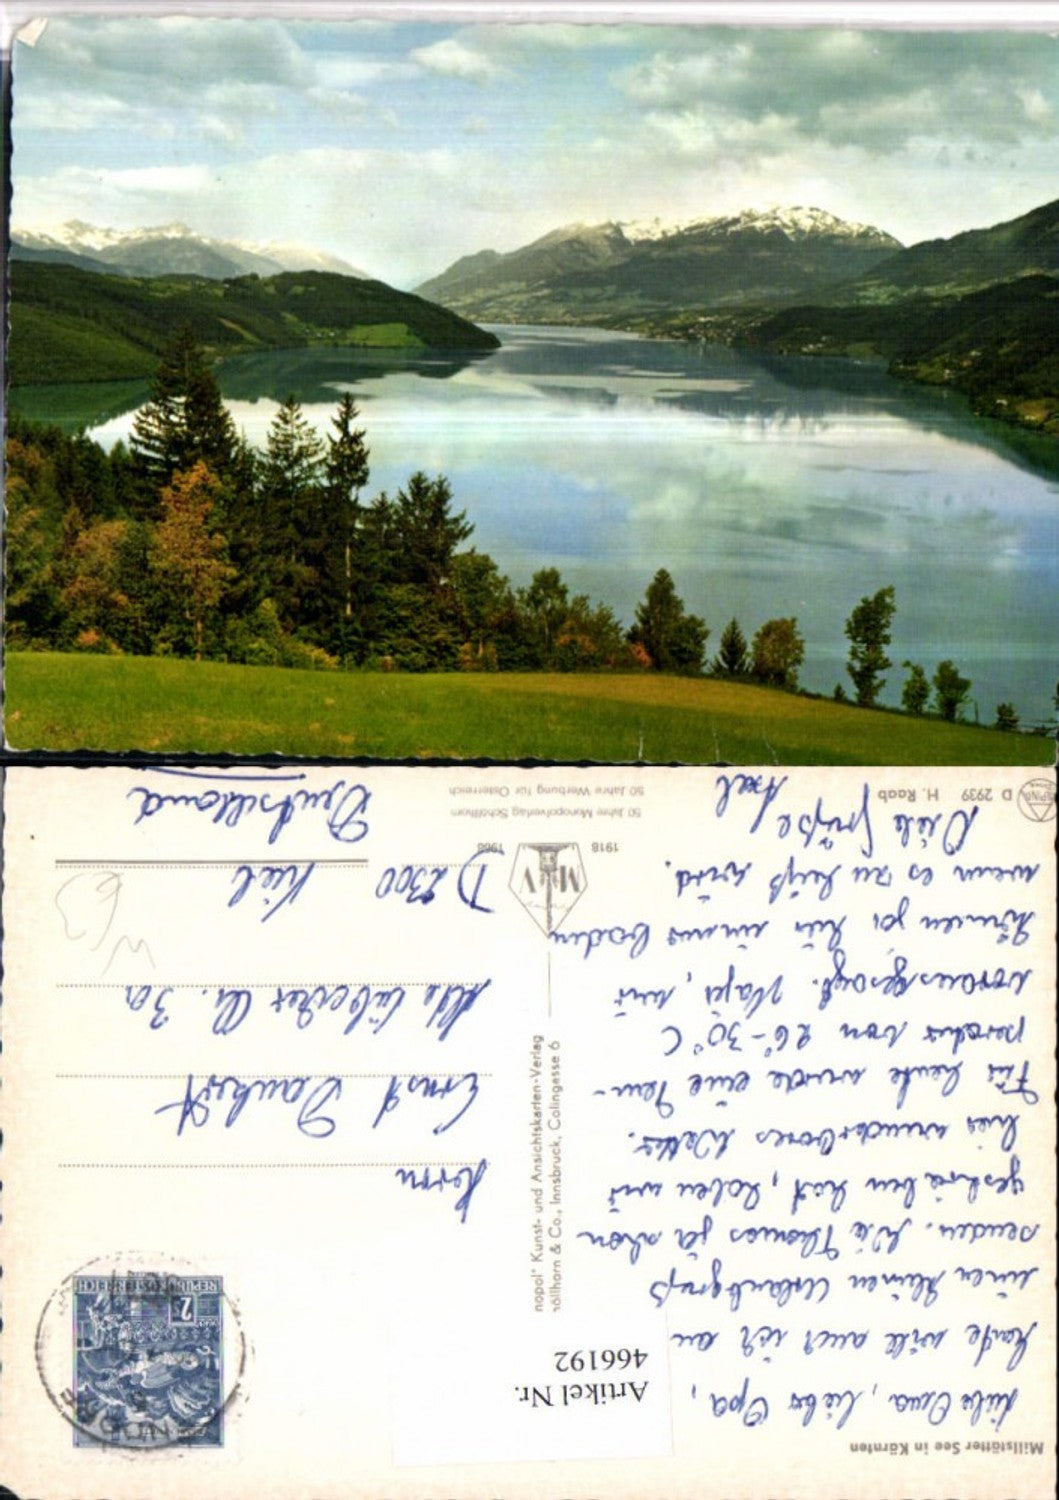 Millstätter See in Kärnten
Liebe Oma, lieber Opa,
heute will auch ich an
einen kleinen Urlaubsgruß
senden. Wie Thomas ja schon
geschrieben hat, haben wir
hier wunderbares Wetter.
Für heute wurde eine Tem-
peratur von 26°-30°C
vorausgesagt. Naja, wir
können ja hier immer baden
wenn es zu heiß wird.
Viele Grüße
Axel
D 2939 H. Raab
Artikel Nr.
466192
nopol" Kunst- und Ansichtskarten-Verlag
höllhorn & Co., Innsbruck, Colingasse 6
1918
MV
1968
50 Jahre Monopolverlag Schöllhorn
50 Jahre Werbung für Österreich
REPUBLIK ÖSTERREICH
2 S
Herrn
Ernst
Alte Lübecker Ch. 3a
D 2300 Kiel
Deutschland